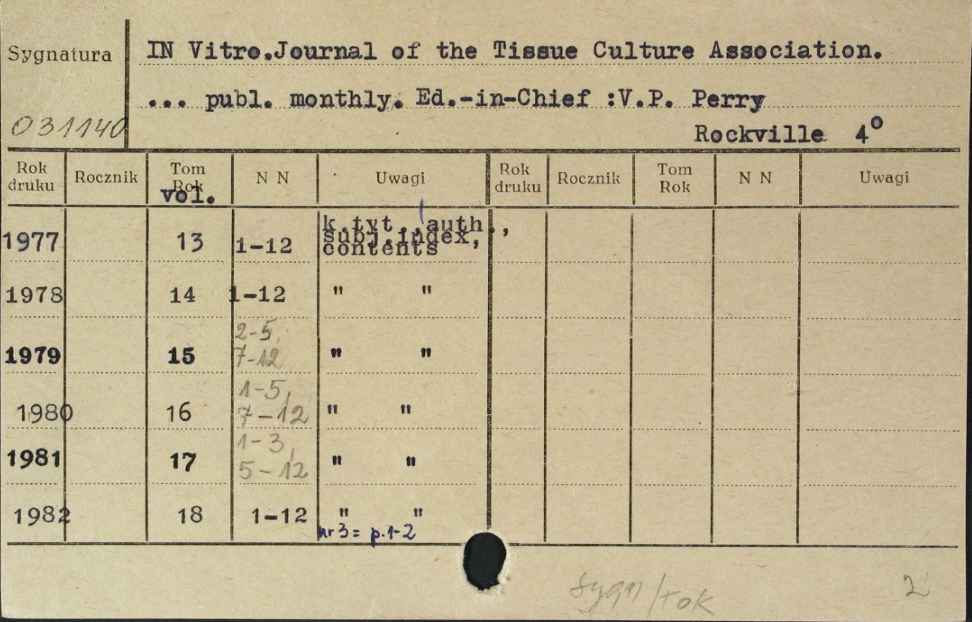 Sygnatura
IN Vitro.Journal of the Tissue Culture Association.
... publ. monthly. Ed.-in-Chief :V.P. Perry
031140
Rockville 4°
Rok druku Rocznik Tom Rok N N Uwagi Rok druku Rocznik Tom Rok N N Uwagi
vol.
1977 13 1-12 k.tyt.,(auth.,
subj.index,
contents
1978 14 1-12 " "
1979 15 2-5, 7-12 " "
1980 16 1-5, 7-12 " "
1981 17 1-3, 5-12 " "
1982 18 1-12 " "
nr 3 = p.1-2
sygn/rok
2